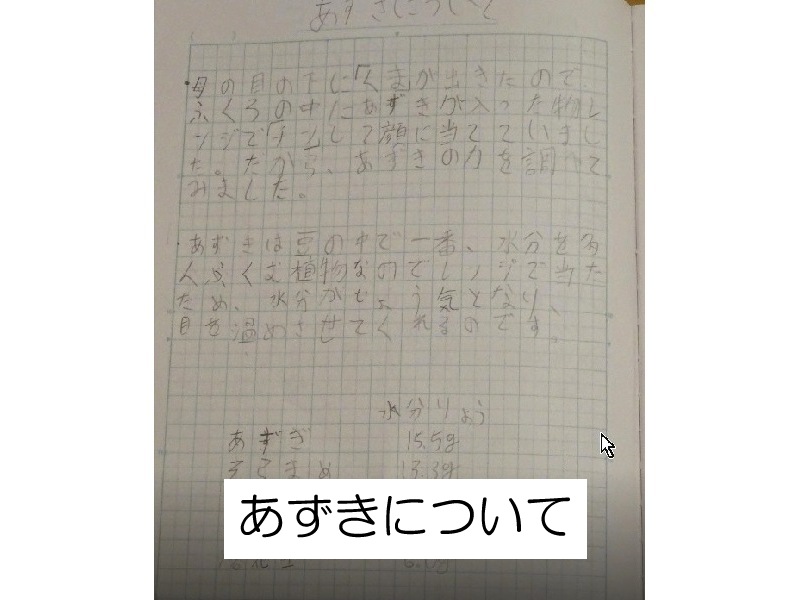 あずきについて
・母の目の下に「くま」が出きたので
ふくろの中にあずきが入った物をレ
ンジで「チン」して顔に当てていまし
た。だから、あずきの力を調べて
みました。
・あずきは豆の中で一番、水分を多
くふくむ植物なのでレンジで当た
ため、水分がじょう気となり、
目を温めさせてくれるのです。
水分りょう
あずき 15.5g
そらまめ 13.3g
あずきについて